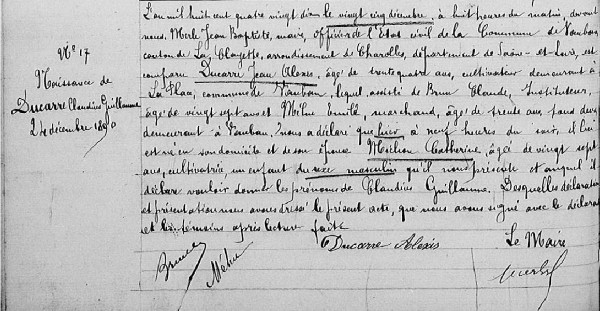 N° 17
Naissance de
Ducarre Claudius Guillaume
24 décembre 1890
L'an mil huit cent quatre vingt dix le vingt cinq décembre, à huit heures du matin, devant
nous, Merle Jean Baptiste, maire, officier de l'Etat civil de la Commune de Vauban,
canton de La Clayette, arrondissement de Charolles, département de Saône-et-Loire, est
comparu Ducarre Jean Alexis, âgé de trente quatre ans, cultivateur demeurant à
commune de Vauban, lequel assisté de Brun Claude, Instituteur,
âgé de vingt sept ans et Mélue Emile, marchand, âgé de trente ans, tous deux
demeurant à Vauban, nous a déclaré que hier à neuf heures du soir, il lui
est né en son domicile et de son épouse Michon Catherine, âgée de vingt sept
ans, cultivatrice, un enfant du sexe masculin qu'il nous présente et auquel il
déclare vouloir donner les prénoms de Claudius Guillaume. Desquelles déclaration
et présentation nous avons dressé le présent acte, que nous avons signé avec le déclarant
et les témoins après lecture faite
Ducarre Alexis
Le Maire
Brun
Mélue
Merle